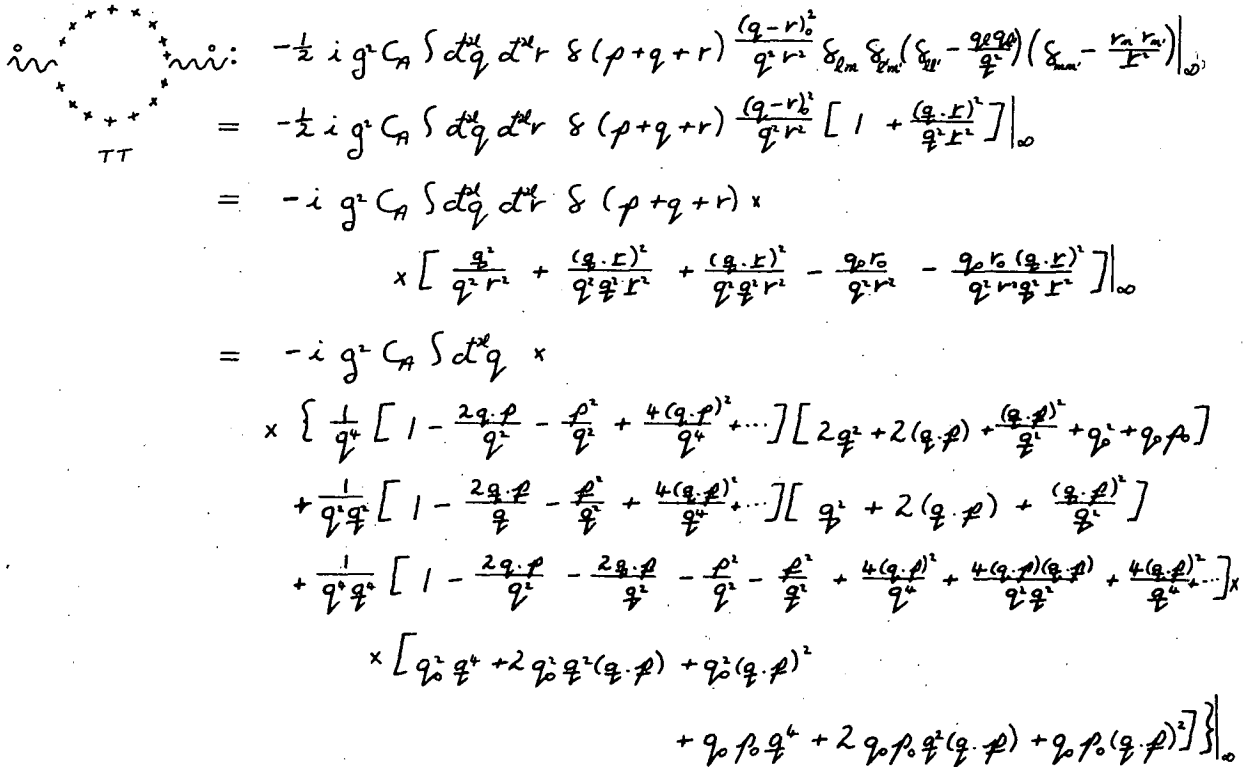 o o: -½ i g² C_A ∫ d^{2l}q d^{2l}r δ(p+q+r) (q-r)₀²/(q² r²) δ_{lm} δ_{l'm'} (δ_{ll'} - q_l q_{l'}/q̲²)(δ_{mm'} - r_m r_{m'}/r̲²)|_∞
TT
= -½ i g² C_A ∫ d^{2l}q d^{2l}r δ(p+q+r) (q-r)₀²/(q² r²) [1 + (q̲.r̲)²/(q̲² r̲²)]|_∞
= -i g² C_A ∫ d^{2l}q d^{2l}r δ(p+q+r) ×
× [q̲²/(q² r²) + (q̲.r̲)²/(q² q̲² r̲²) + (q̲.r̲)²/(q² q̲² r²) - q₀r₀/(q² r²) - q₀r₀(q̲.r̲)²/(q² r² q̲² r̲²)]|_∞
= -i g² C_A ∫ d^{2l}q ×
× { 1/q⁴ [1 - 2q.p/q² - p²/q² + 4(q.p)²/q⁴ + ...][2q̲² + 2(q̲.p̲) + (q̲.p̲)²/q̲² + q₀² + q₀p₀]
+ 1/(q² q̲²) [1 - 2q̲.p̲/q̲ - p̲²/q̲² + 4(q̲.p̲)²/q̲⁴ + ...][q̲² + 2(q̲.p̲) + (q̲.p̲)²/q̲²]
+ 1/(q⁴ q̲⁴) [1 - 2q.p/q² - 2q̲.p̲/q̲² - p²/q² - p̲²/q̲² + 4(q.p)²/q⁴ + 4(q.p)(q̲.p̲)/(q² q̲²) + 4(q̲.p̲)²/q̲⁴ + ...] ×
× [q₀² q̲⁴ + 2q₀² q̲²(q̲.p̲) + q₀²(q̲.p̲)²
+ q₀p₀q̲⁴ + 2q₀p₀q̲²(q̲.p̲) + q₀p₀(q̲.p̲)²]}|_∞